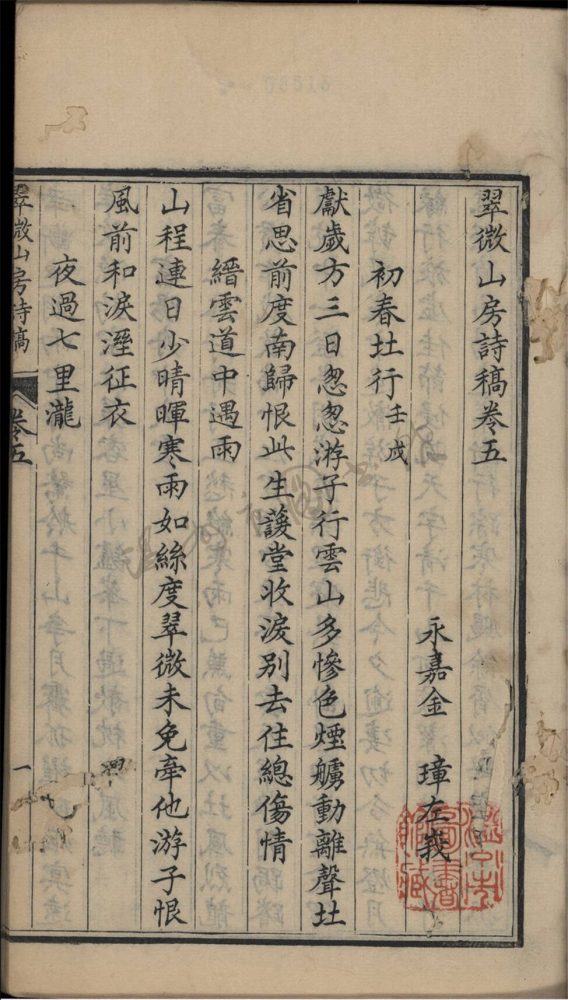 翠微山房詩稿卷五
永嘉金　璋左
初春北行壬戌
獻歲方三日怱怱游子行雲山多慘色煙艣動離聲北
省思前度南歸恨此生蘐堂收淚別去住總傷情
縉雲道中遇雨
山程連日少晴暉寒雨如絲度翠微未免牽他游子恨
風前和淚溼征衣
夜過七里瀧
翠微山房詩稿 卷五 一